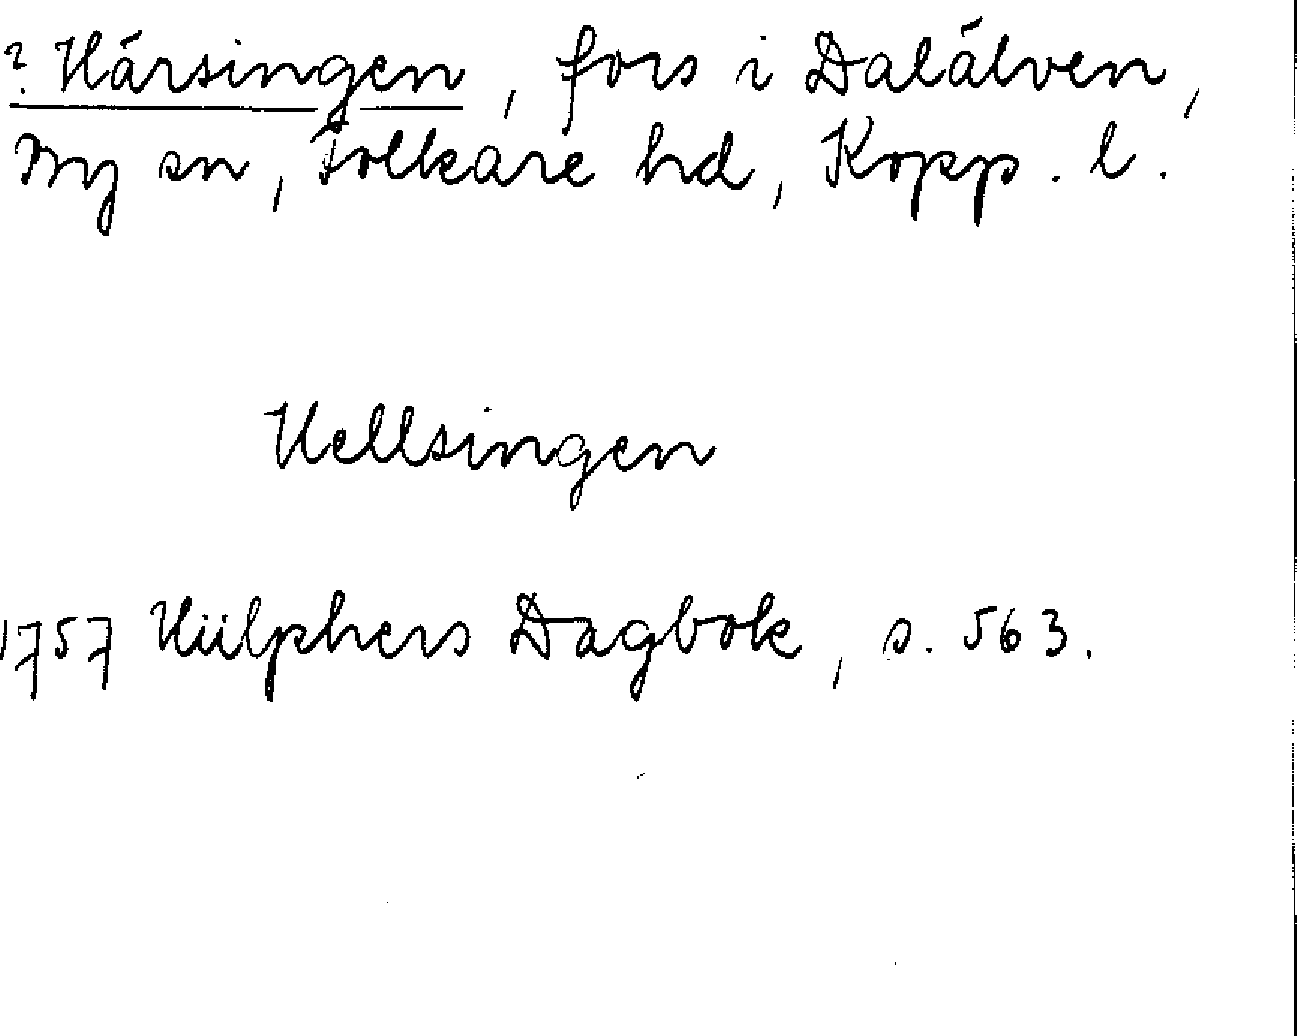 ? Härsingen, fors i Dalälven,
By sn, Folkare hd, Kopp. l.
Hellsingen
1757 Hülphers Dagbok, s. 563.